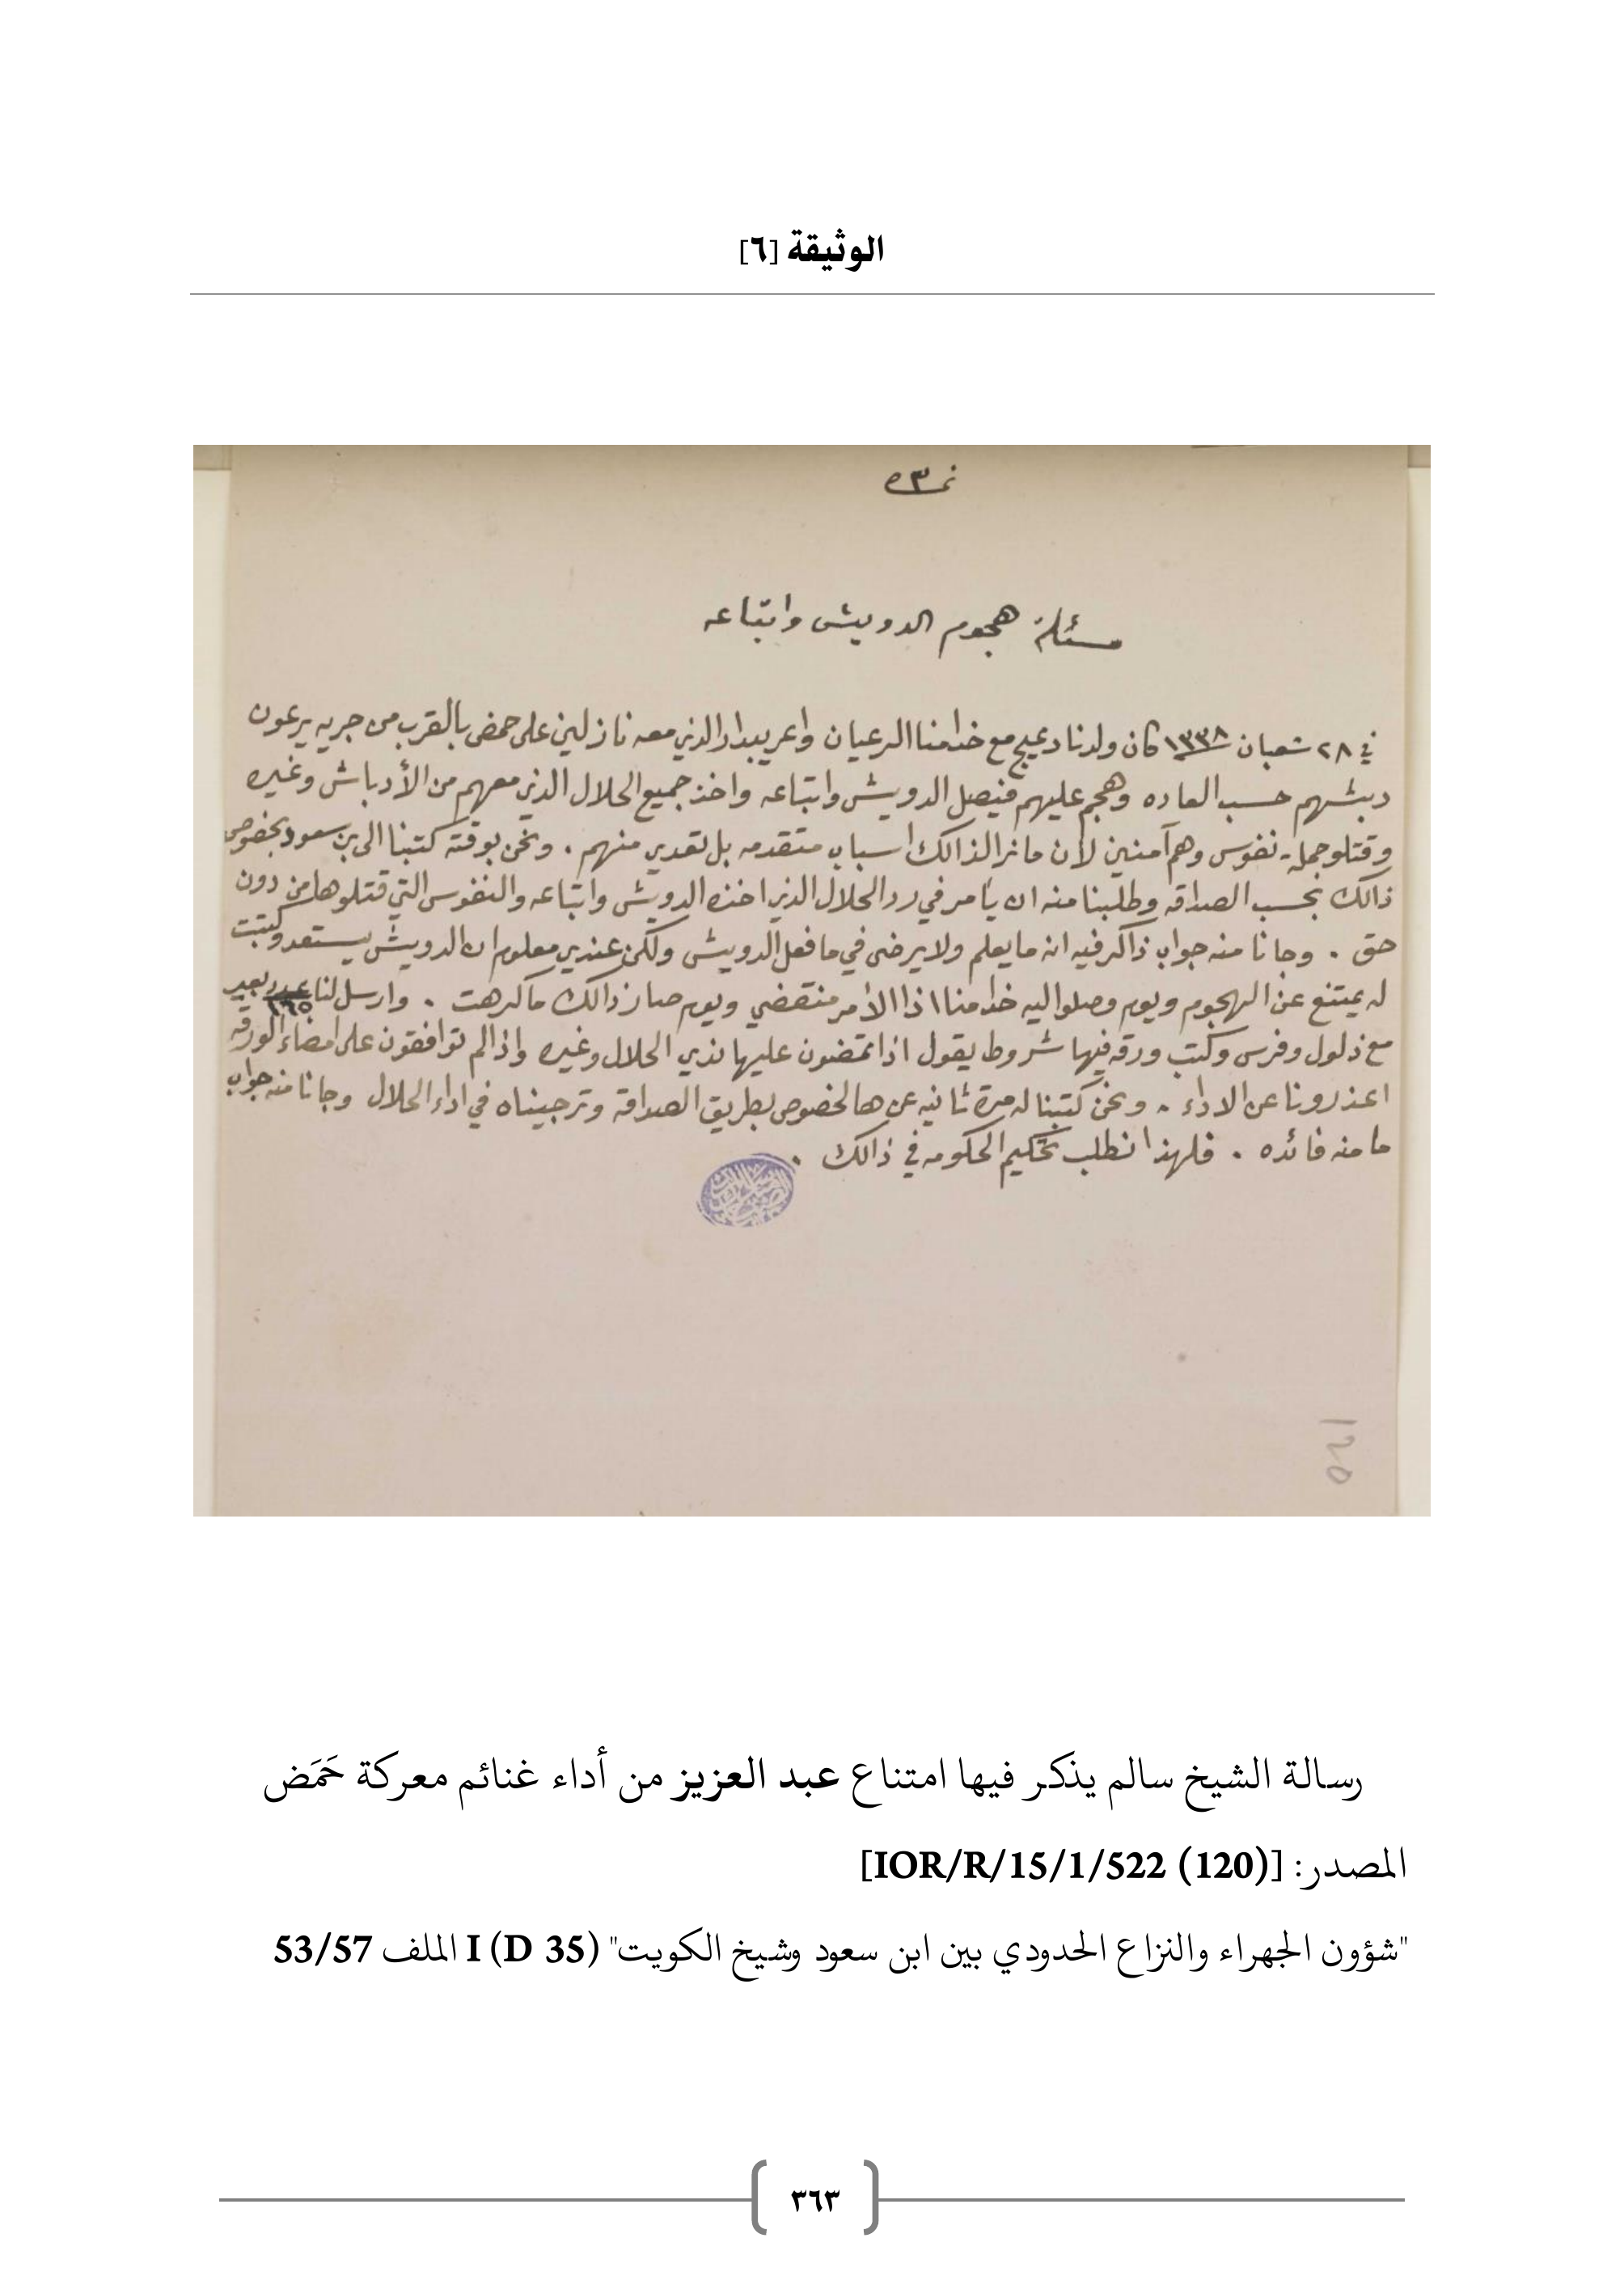 الوثيقة [٦]
نمره ٣
مسئلة هجوم الدويش واتباعه
في ٢٨ شعبان ١٣٣٨ كان ولدنا دعيج مع خدامنا الرعيان واعريبدار الذي معه نازلين على حمض بالقرب من جريه يرعون
دبشهم حسب العاده وهجم عليهم فيصل الدويش واتباعه واخذ جميع الحلال الذي معهم من الأدباش وغيره
وقتلو جملة نفوس وهم آمنين لأن ما نرا لذالك اسباب متقدمه بل تعدي منهم . ونحن بوقته كتبنا الى بن سعود بخصوص
ذالك بحسب الصداقه وطلبنا منه ان يأمر في رد الحلال الذي اخذه الدويش واتباعه والنفوس التي قتلوها من دون
حق . وجانا منه جواب ذاكر فيه انه ما يعلم ولا يرضى في ما فعل الدويش ولكن عندي معلوم ان الدويش يستعد وكتبت
له يمتنع عن الهجوم ويوم وصلوا اليه خدامنا اذا الأمر منقضي ويوم صار ذالك ما كرهت . وارسل لنا عدد بعير
١٦٥
مع ذلول وفرس وكتب ورقه فيها شروط يقول اذا تمضون عليها نذي الحلال وغيره واذا لم توافقون على امضاء الورقه
اعذرونا عن الاداء . ونحن كتبنا له مرة ثانيه عن هالخصوص بطريق الصداقه وترجيناه في اداء الحلال وجانا منه جواب
ما منه فائده . فلهذا نطلب تحكيم الحكومه في ذالك .
120
رسالة الشيخ سالم يذكر فيها امتناع عبد العزيز من أداء غنائم معركة حَمَض
المصدر: [IOR/R/15/1/522 (120)]
"شؤون الجهراء والنزاع الحدودي بين ابن سعود وشيخ الكويت" I (D 35) الملف 53/57
٣٦٣